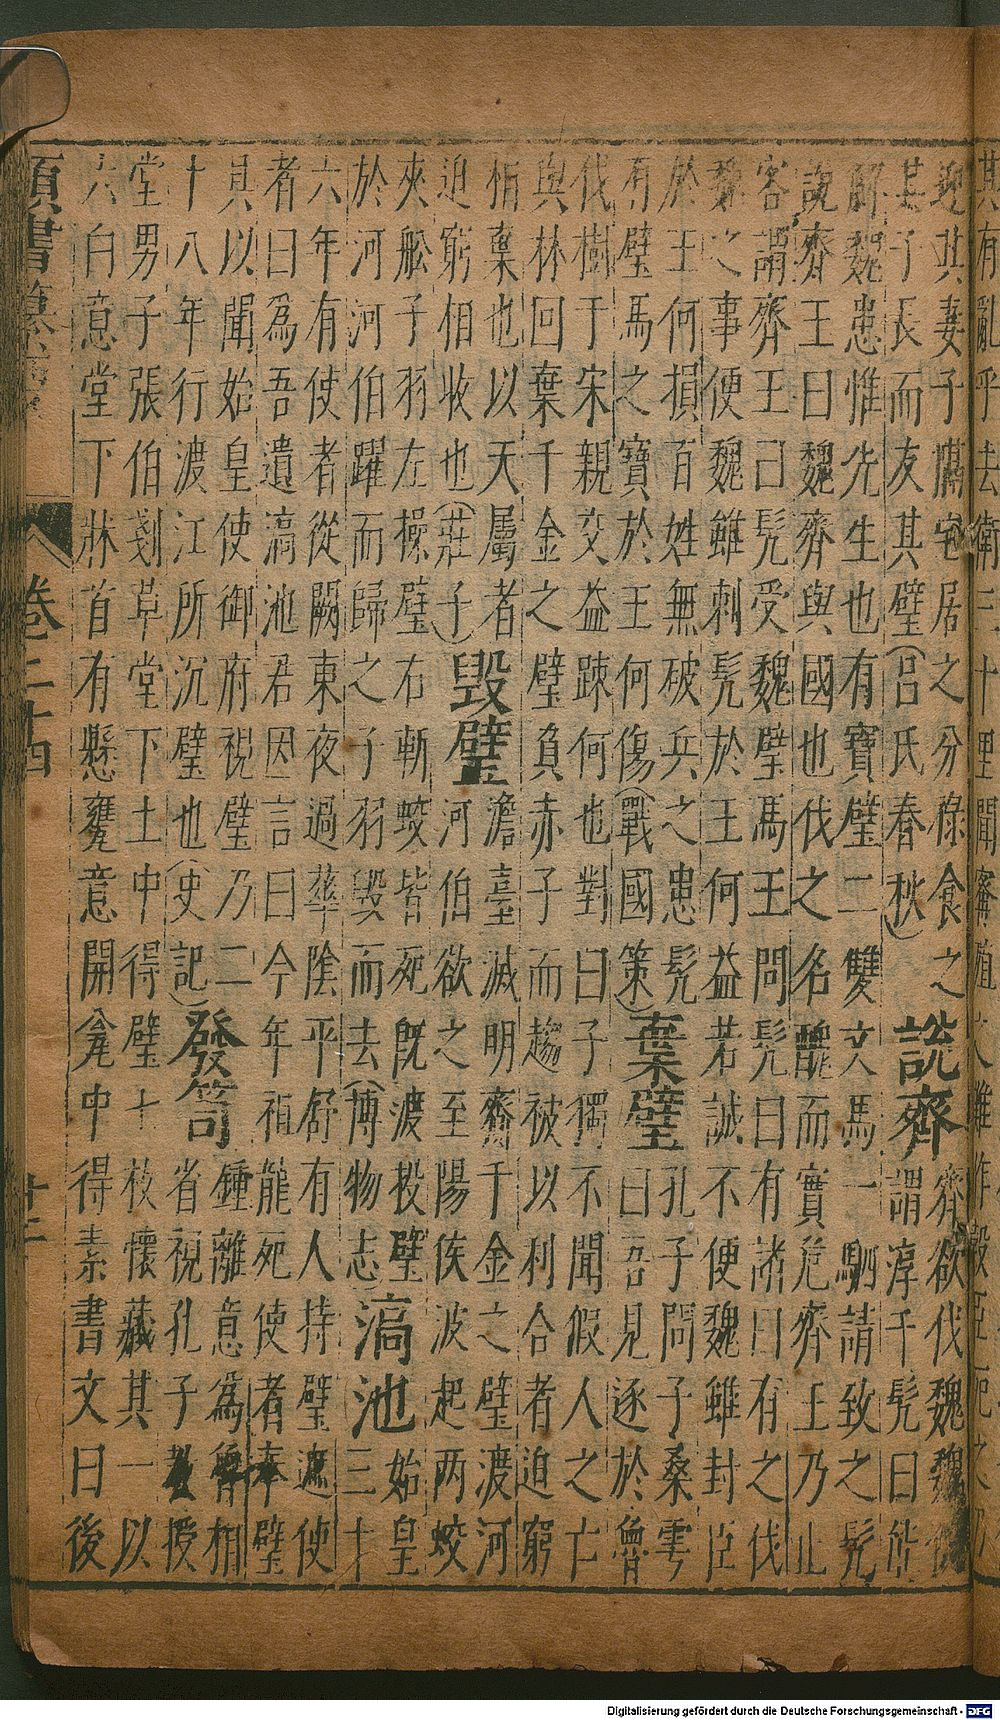 其有亂乎去衛三十里聞甯殖之難作殺臣死之乃
迎其妻子隔宅居之分祿食之
其子長而友其璧(呂氏春秋)
說齊
齊欲伐魏魏使
謂淳于髠曰能
解魏患惟先生也有寶璧二雙文馬一駟請致之髠
說齊王曰魏齊與國也伐之名醜而實危齊王乃止
客謂齊王曰髠受魏璧馬王問髠曰有諸曰有之伐
魏之事便魏雖刺髠於王何益若誠不便魏雖封臣
於王何損百姓無破兵之患髠
有璧馬之寶於王何傷(戰國策)
棄璧
孔子問子桑雩
曰吾見逐於魯
伐樹于宋親交益踈何也對曰子獨不聞假人之亡
與林回棄千金之璧負赤子而趨被以利合者迫窮
相棄也以天屬者
迫窮相收也(莊子)
毀璧
澹臺滅明齎千金之璧渡河
河伯欲之至陽侯波起两蛟
夾舩子羽左操璧右斬蛟皆死既渡投璧
於河河伯躍而歸之子羽毀而去(博物志)
滈池
始皇
三十
六年有使者從關東夜過華陰平舒有人持璧遮使
者曰為吾遺滈池君因言曰今年祖龍死使者奉璧
具以聞始皇使御府視璧乃二
十八年行渡江所沉璧也(史記)
發笥
鍾離意為魯相
省視孔子教授
堂男子張伯剗草堂下土中得璧七枚懷藏其一以
六白意堂下牀首有懸甕意開甕中得素書文曰後
類書纂 卷二十四 十二
Digitalisierung gefördert durch die Deutsche Forschungsgemeinschaft - DFG